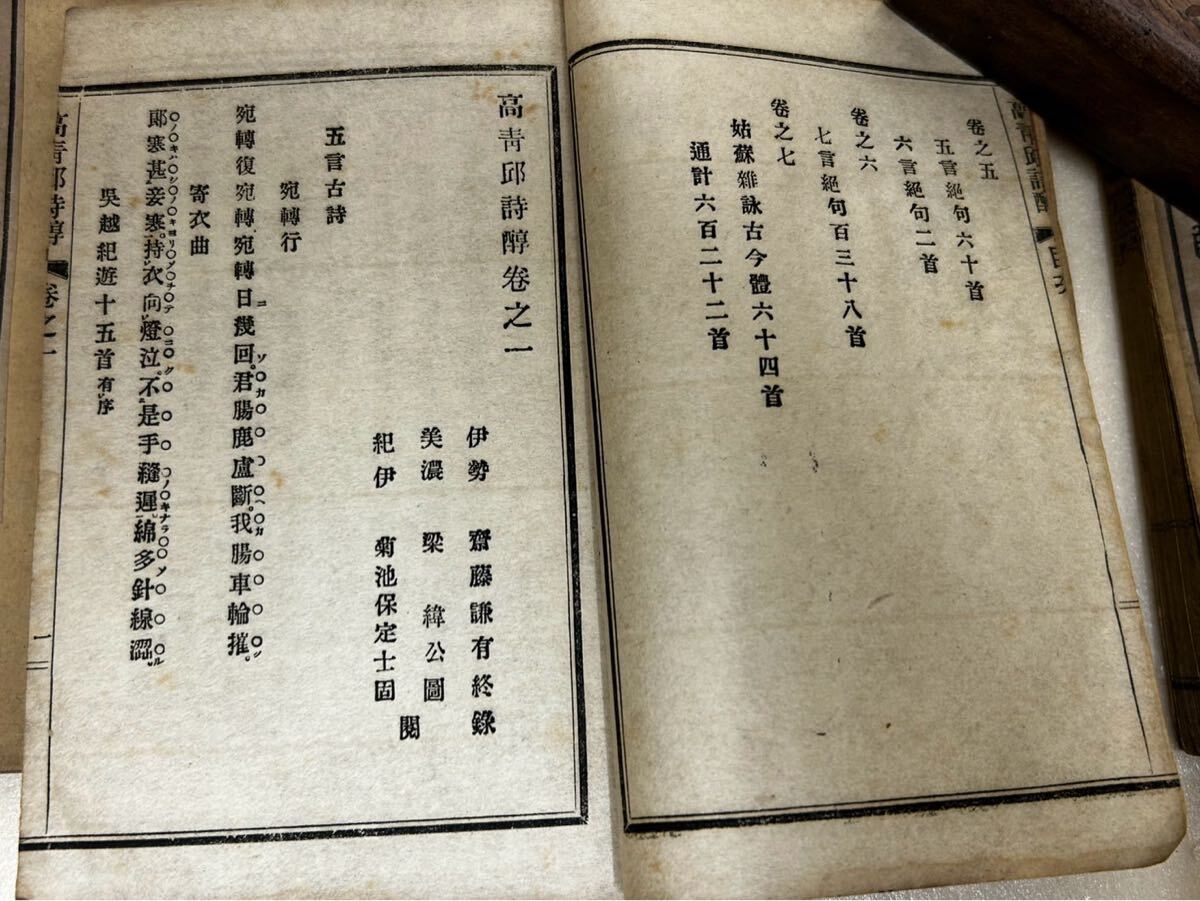 高青邱詩醇
卷之五
五言絕句六十首
六言絕句二首
卷之六
七言絕句百三十八首
卷之七
姑蘇雜詠古今體六十四首
通計六百二十二首
高青邱詩醇卷之一
伊勢 齋藤謙有終錄
美濃 梁 緯公圖
紀伊 菊池保定士固
閱
五言古詩
宛轉行
宛轉復宛轉宛轉日幾回君腸鹿盧斷我腸車輪摧
寄衣曲
郞寒甚妾寒持衣向燈泣不是手縫遲綿多針線澀
吳越紀遊十五首有序
高青邱詩醇 卷之一 一